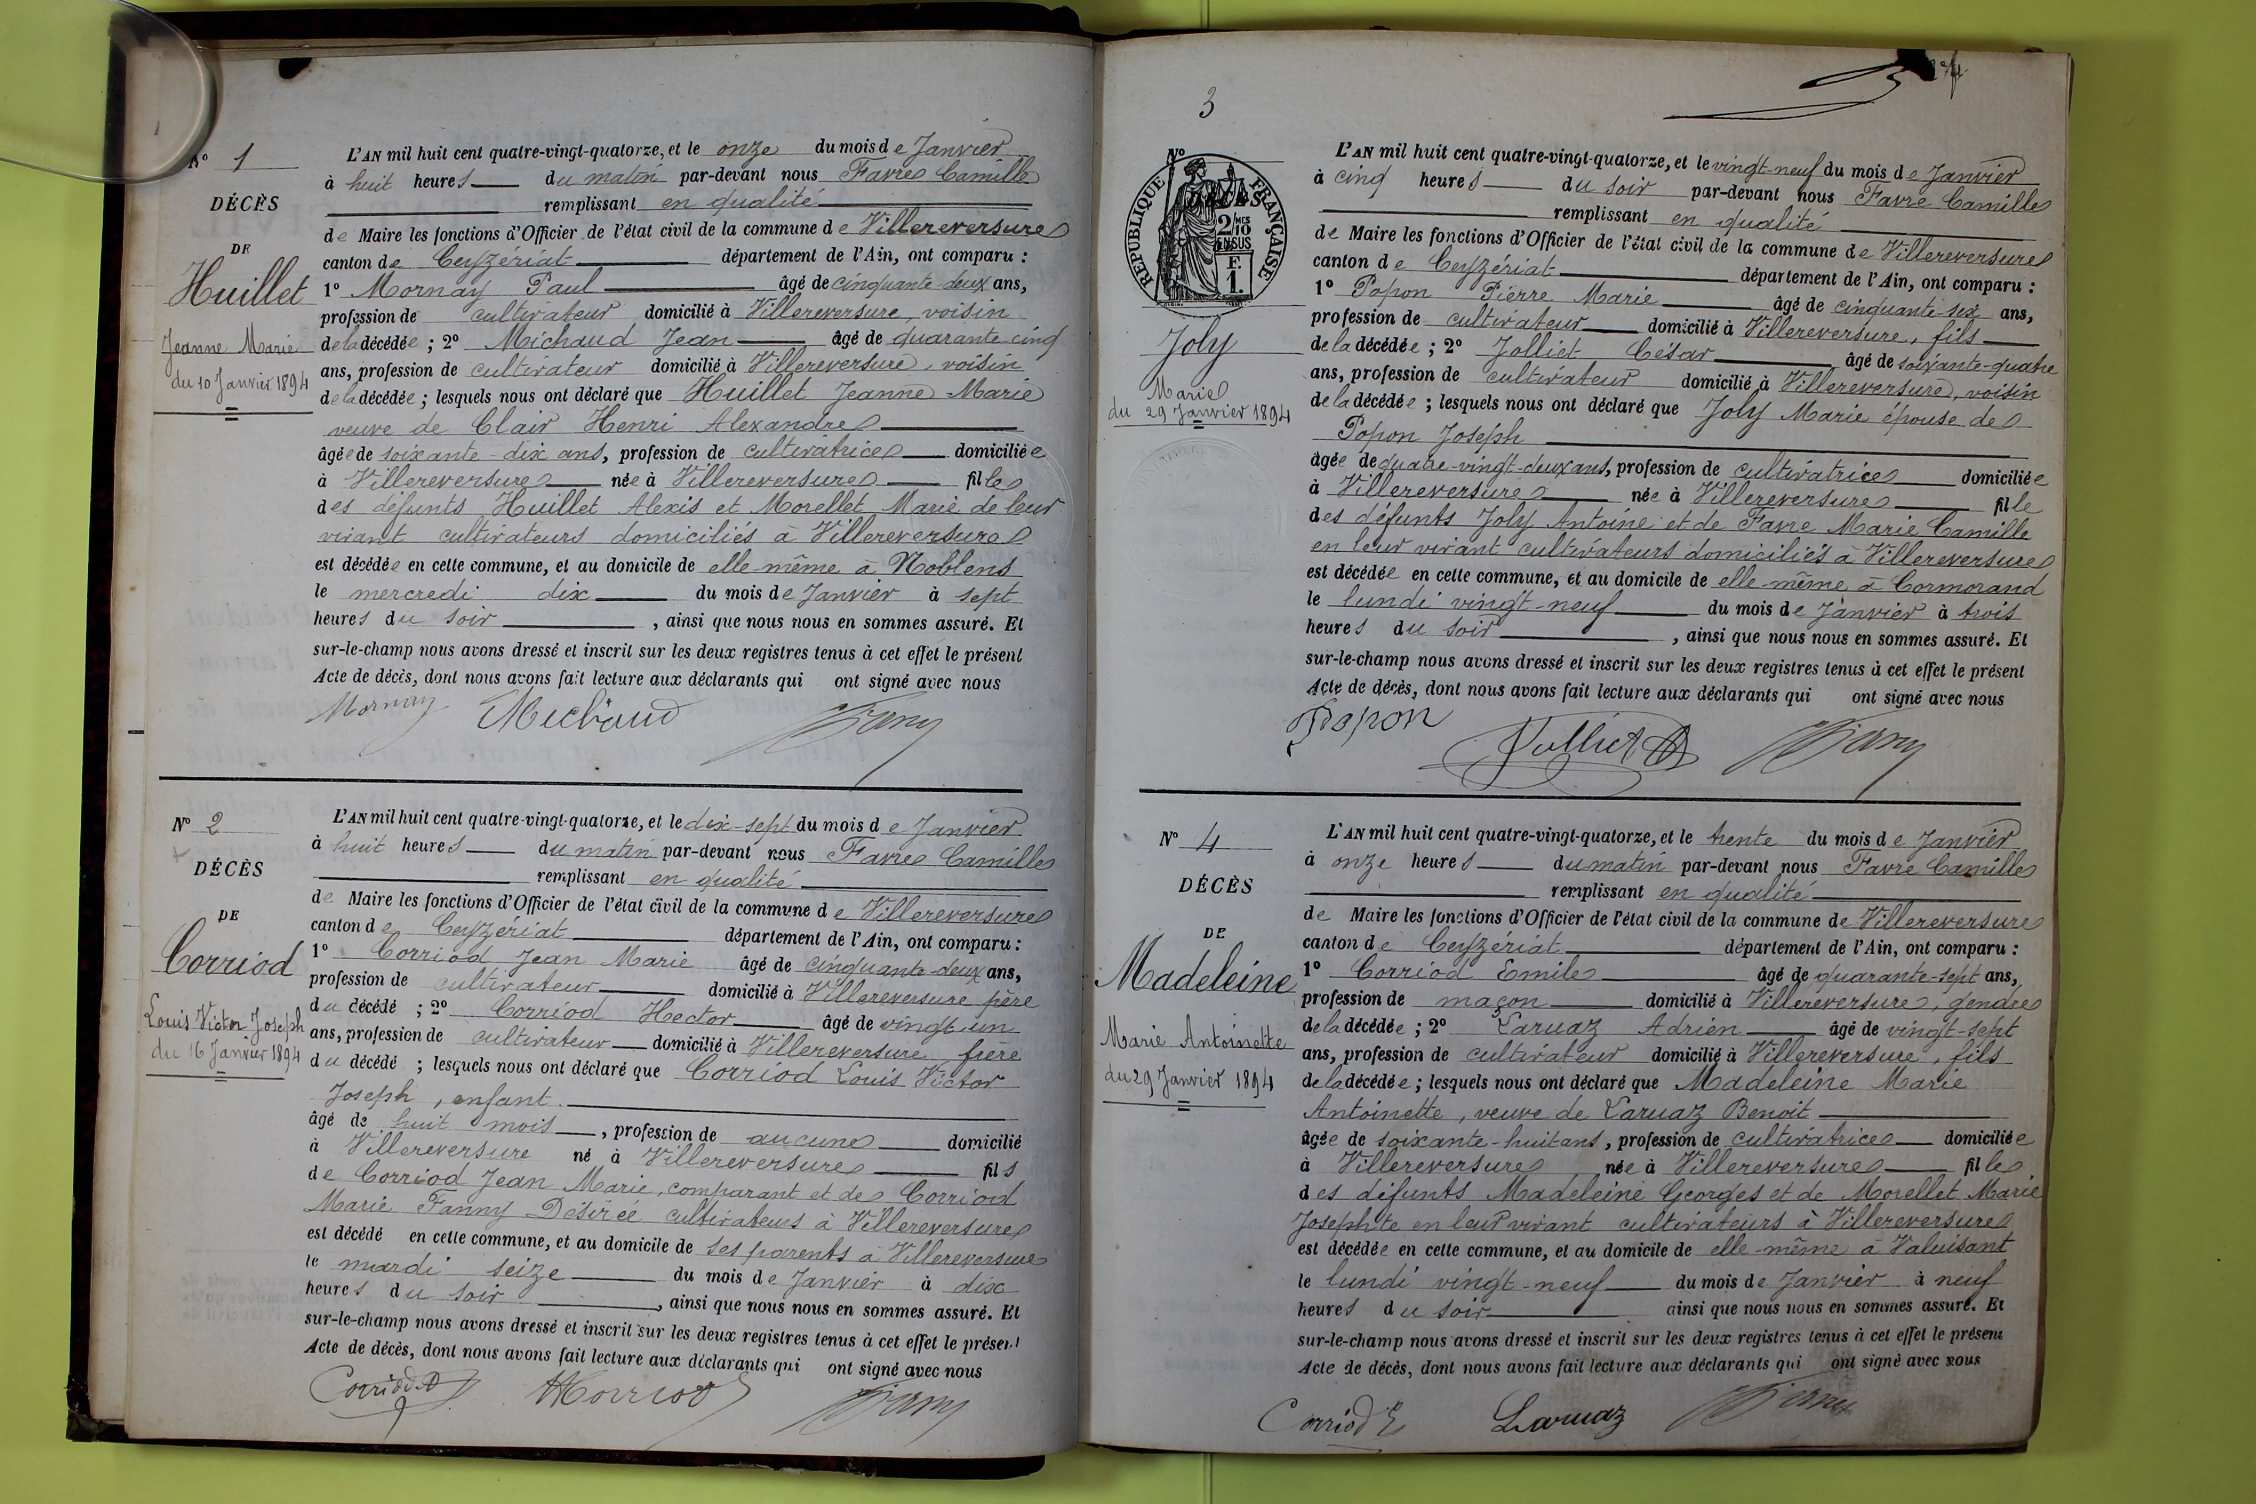 N° 1
DÉCÈS
DE
Huillet
Jeanne Marie
du 10 Janvier 1894
L'AN mil huit cent quatre-vingt-quatorze, et le onze du mois de Janvier
à huit heures du matin par-devant nous Favre Camille
remplissant en qualité
de Maire les fonctions d'Officier de l'état civil de la commune de Villereversure
canton de Ceyzériat département de l'Ain, ont comparu :
1° Mornay Paul âgé de cinquante-deux ans,
profession de cultivateur domicilié à Villereversure, voisin
de la décédée ; 2° Michaud Jean âgé de quarante-cinq
ans, profession de cultivateur domicilié à Villereversure, voisin
de la décédée ; lesquels nous ont déclaré que Huillet Jeanne Marie
veuve de Clair Henri Alexandre
âgée de soixante-dix ans, profession de cultivatrice domiciliée
à Villereversure née à Villereversure fille
des défunts Huillet Alexis et Morellet Marie de leur
vivant cultivateurs domiciliés à Villereversure
est décédée en cette commune, et au domicile de elle-même à Noblens
le mercredi dix du mois de Janvier à sept
heures du soir , ainsi que nous nous en sommes assuré. Et
sur-le-champ nous avons dressé et inscrit sur les deux registres tenus à cet effet le présent
Acte de décès, dont nous avons fait lecture aux déclarants qui ont signé avec nous
Mornay Michaud
N° 2
DÉCÈS
DE
Corriod
Louis Victor Joseph
du 16 Janvier 1894
L'AN mil huit cent quatre-vingt-quatorze, et le dix-sept du mois de Janvier
à huit heures du matin par-devant nous Favre Camille
remplissant en qualité
de Maire les fonctions d'Officier de l'état civil de la commune de Villereversure
canton de Ceyzériat département de l'Ain, ont comparu :
1° Corriod Jean Marie âgé de cinquante-deux ans,
profession de cultivateur domicilié à Villereversure père
du décédé ; 2° Corriod Hector âgé de vingt un
ans, profession de cultivateur domicilié à Villereversure frère
du décédé ; lesquels nous ont déclaré que Corriod Louis Victor
Joseph, enfant
âgé de huit mois , profession de aucune domicilié
à Villereversure né à Villereversure fils
de Corriod Jean Marie, comparant et de Corriod
Marie Fanny Désirée cultivateurs à Villereversure
est décédé en cette commune, et au domicile de ses parents à Villereversure
le mardi seize du mois de Janvier à dix
heures du soir , ainsi que nous nous en sommes assuré. Et
sur-le-champ nous avons dressé et inscrit sur les deux registres tenus à cet effet le présent
Acte de décès, dont nous avons fait lecture aux déclarants qui ont signé avec nous
Corriod HCorriod
3
N°
RÉPUBLIQUE FRANÇAISE
2/10
EN SUS
F.
1.
Joly
Marie
du 29 Janvier 1894
L'AN mil huit cent quatre-vingt-quatorze, et le vingt-neuf du mois de Janvier
à cinq heures du soir par-devant nous Favre Camille
remplissant en qualité
de Maire les fonctions d'Officier de l'état civil de la commune de Villereversure
canton de Ceyzériat département de l'Ain, ont comparu :
1° Popon Pierre Marie âgé de cinquante-six ans,
profession de cultivateur domicilié à Villereversure, fils
de la décédée ; 2° Jolliet César âgé de soixante-quatre
ans, profession de cultivateur domicilié à Villereversure, voisin
de la décédée ; lesquels nous ont déclaré que Joly Marie épouse de
Popon Joseph
âgée de quatre-vingt-deux ans, profession de cultivatrice domiciliée
à Villereversure née à Villereversure fille
des défunts Joly Antoine et de Favre Marie Camille
en leur vivant cultivateurs domiciliés à Villereversure
est décédée en cette commune, et au domicile de elle-même à Cormorand
le lundi vingt-neuf du mois de Janvier à trois
heures du soir , ainsi que nous nous en sommes assuré. Et
sur-le-champ nous avons dressé et inscrit sur les deux registres tenus à cet effet le présent
Acte de décès, dont nous avons fait lecture aux déclarants qui ont signé avec nous
Popon Jolliet
N° 4
DÉCÈS
DE
Madeleine
Marie Antoinette
du 29 Janvier 1894
L'AN mil huit cent quatre-vingt-quatorze, et le trente du mois de Janvier
à onze heures du matin par-devant nous Favre Camille
remplissant en qualité
de Maire les fonctions d'Officier de l'état civil de la commune de Villereversure
canton de Ceyzériat département de l'Ain, ont comparu :
1° Corriod Emile âgé de quarante-sept ans,
profession de maçon domicilié à Villereversure, gendre
de la décédée ; 2° Laruaz Adrien âgé de vingt-sept
ans, profession de cultivateur domicilié à Villereversure, fils
de la décédée ; lesquels nous ont déclaré que Madeleine Marie
Antoinette, veuve de Laruaz Benoit
âgée de soixante-huit ans, profession de cultivatrice domiciliée
à Villereversure née à Villereversure fille
des défunts Madeleine Georges et de Morellet Marie
Josephte en leur vivant cultivateurs à Villereversure
est décédée en cette commune, et au domicile de elle-même à Valuisant
le lundi vingt-neuf du mois de Janvier à neuf
heures du soir ainsi que nous nous en sommes assuré. Et
sur-le-champ nous avons dressé et inscrit sur les deux registres tenus à cet effet le présent
Acte de décès, dont nous avons fait lecture aux déclarants qui ont signé avec nous
Corriod E Laruaz